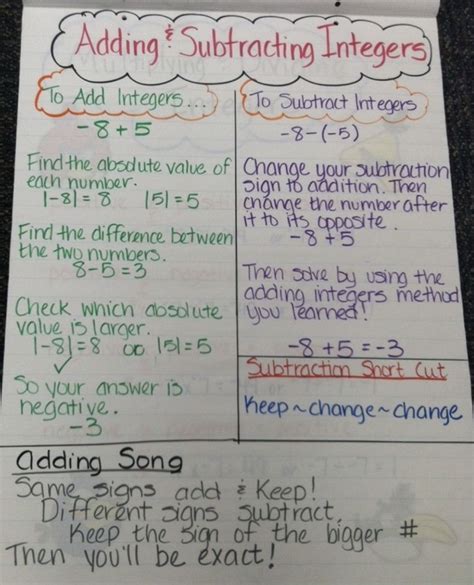 Adding & Subtracting Integers
To Add Integers
-8 + 5
Find the absolute value of
each number.
|-8| = 8 |5| = 5
Find the difference between
the two numbers.
8-5=3
Check which absolute
value is larger.
|-8|=8 or |5|=5
✓
So your answer is
negative.
-3
To Subtract Integers
-8-(-5)
Change your subtraction
sign to addition. Then
change the number after
it to its opposite.
-8+5
Then solve by using the
adding integers method
you learned!
-8+5=-3
Subtraction Short Cut
Keep~change~change
adding Song
Same signs add & Keep!
Different signs subtract.
Keep the sign of the bigger #
Then you'll be exact!